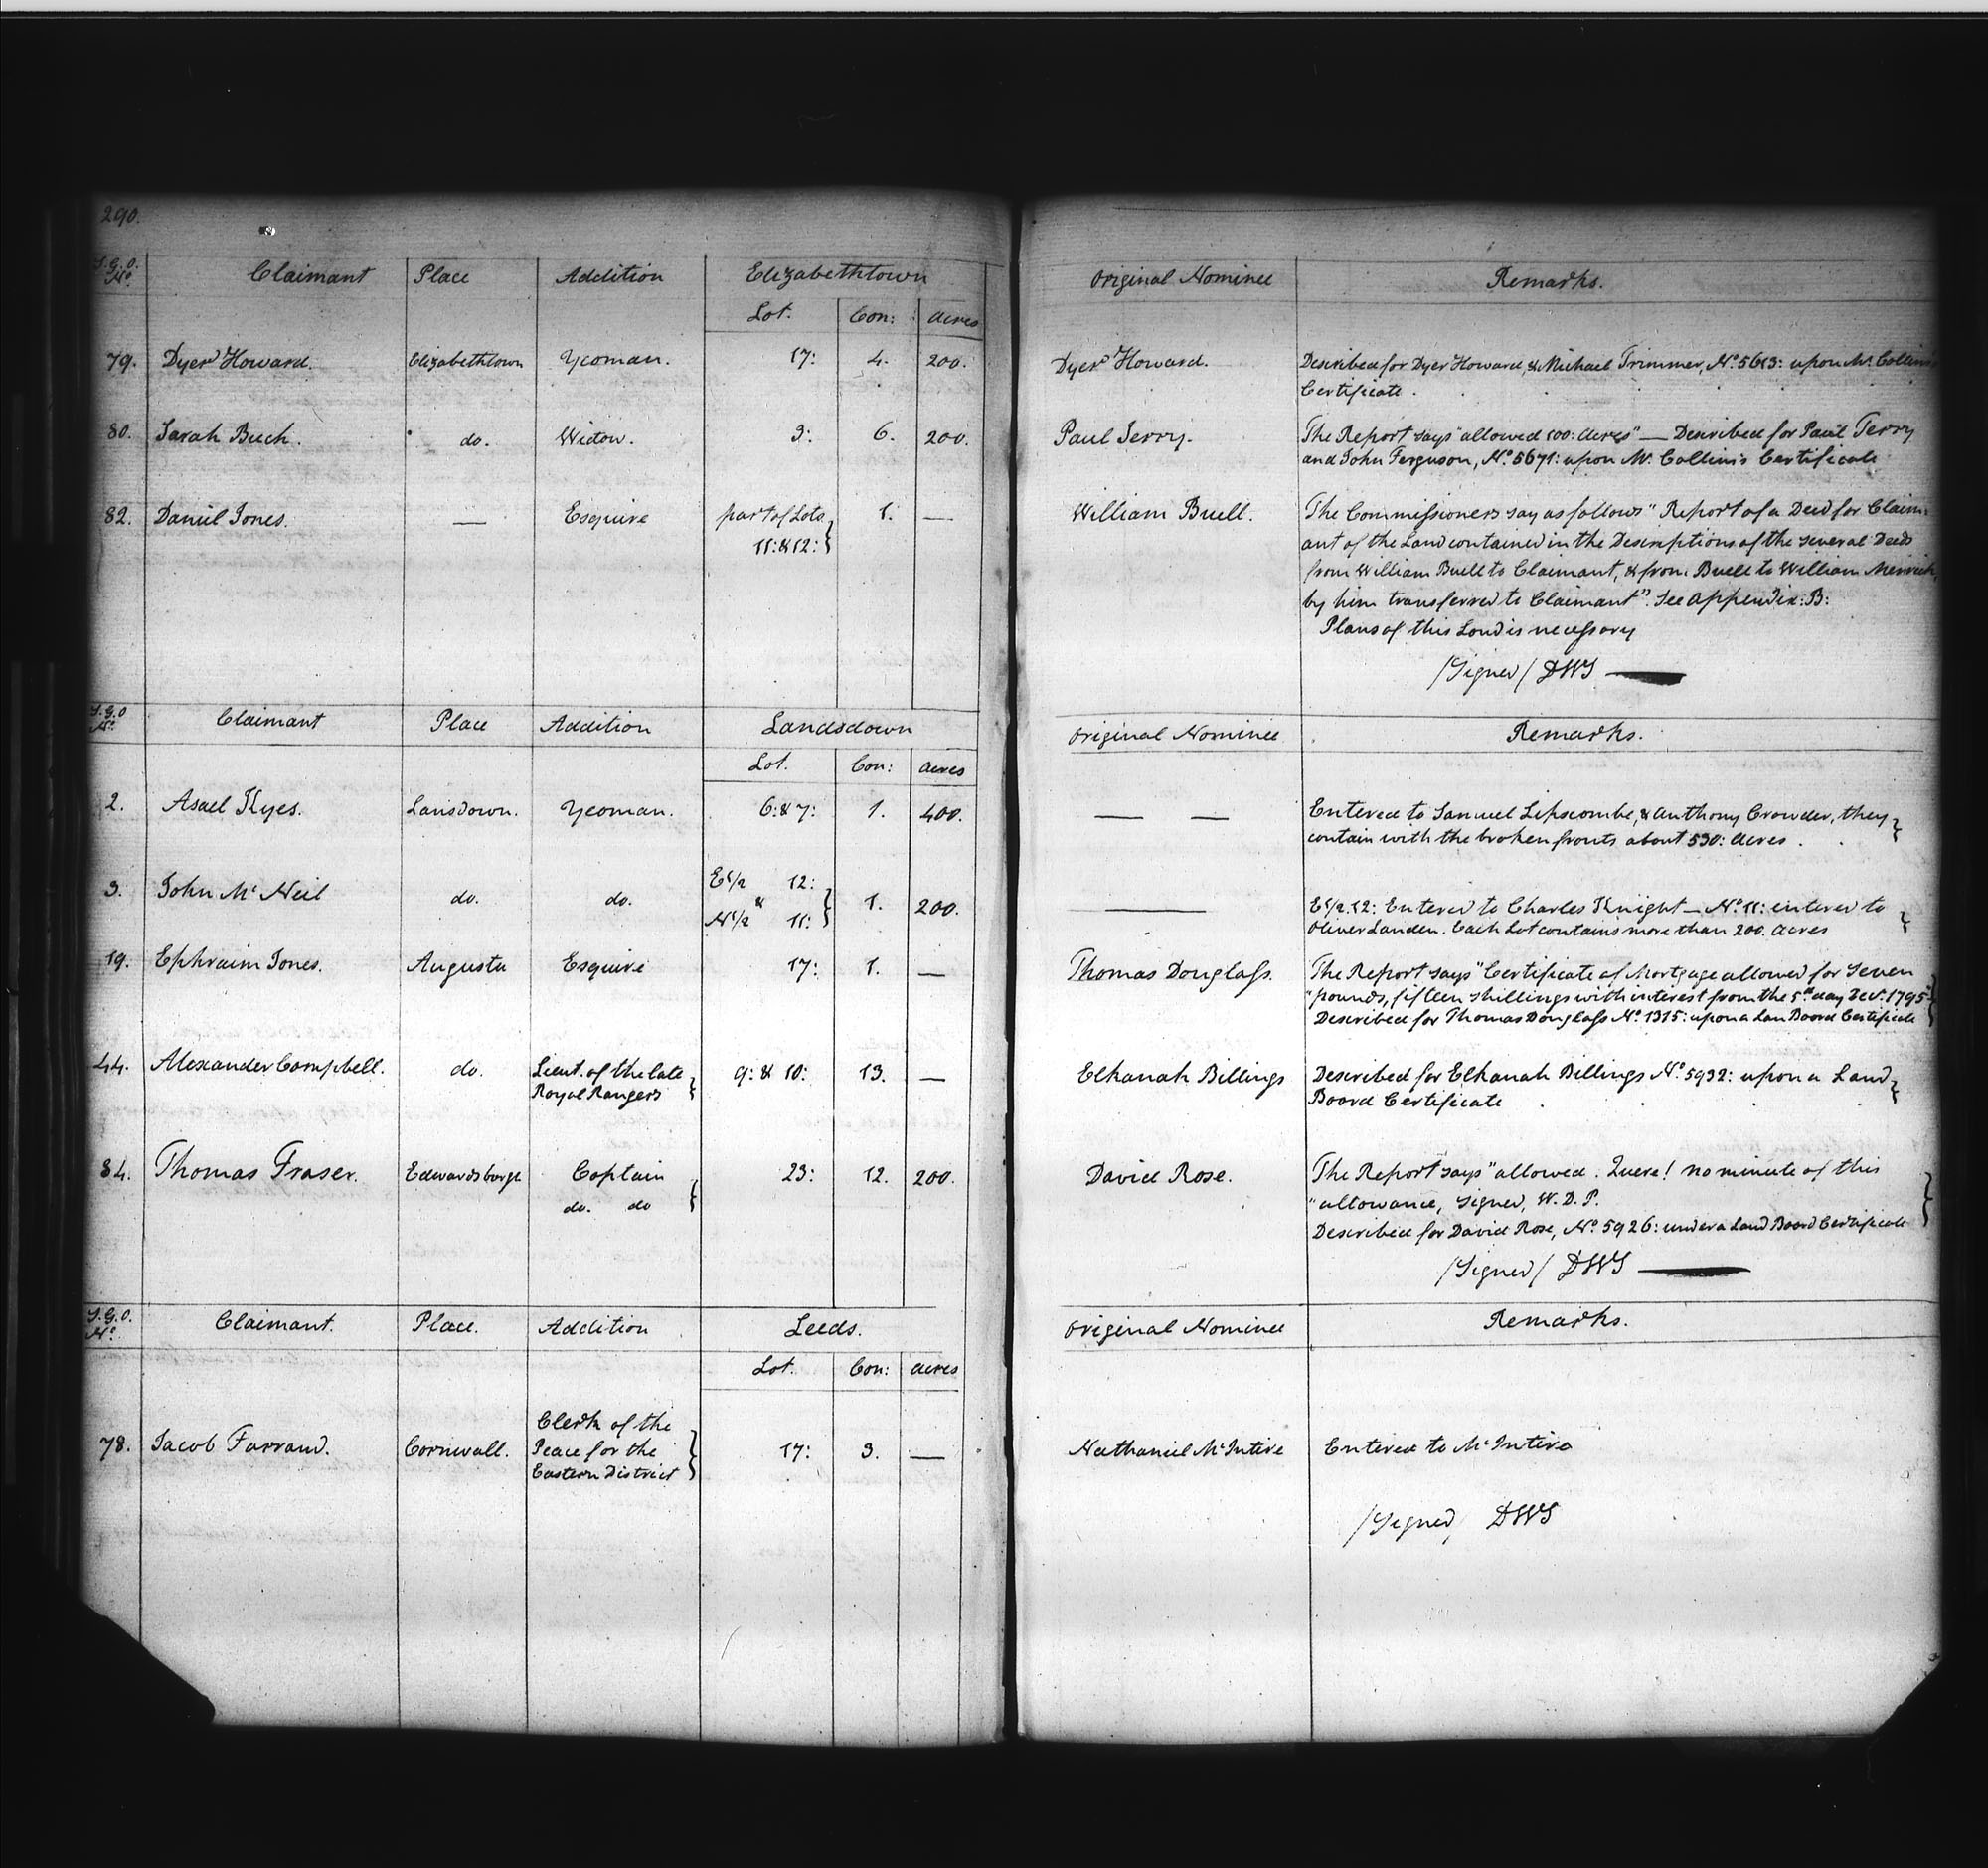 290.
S.G.O. No. Claimant Place Addition Elizabethtown Original Nominee Remarks.
Lot. Con: acres
79. Dyer Howard. Elizabethtown Yeoman. 17: 4. 200. Dyer Howard. Described for Dyer Howard, & Michael Trimmer, No. 5613: upon Mr. Collins
Certificate.
80. Sarah Buck. do. Widow. 3: 6. 200. Paul Terry. The Report says "allowed 100: acres" — Described for Paul Terry
and John Ferguson, No. 5671: upon Mr. Collin's Certificate
82. Daniel Jones. — Esquire part of Lots 1. — William Buell. The Commissioners say as follows "Report of a Deed for Claim:
11: & 12: } ant of the Land contained in the Descriptions of the several Deeds
from William Buell to Claimant, & from Buell to William Merrick,
by him transferred to Claimant". See Appendix: B:
Plans of this Land is necessary
/Signed/ DWS —
S.G.O No. Claimant Place Addition Landsdown Original Nominee Remarks.
Lot. Con: acres
2. Asael Keyes. Lansdown. Yeoman. 6: & 7: 1. 400. — — Entered to Samuel Lipscombe, & Anthony Crowder, they }
contain with the broken fronts about 530: acres.
3. John McNeil do. do. E 1/2 12: & N 1/2 11: } 1. 200. — E 1/2. 12: Entered to Charles Knight — No. 11: entered to }
Oliver Landen. Each Lot contains more than 200. acres
19. Ephraim Jones. Augusta Esquire 17: 1. — Thomas Douglass. The Report says "Certificate of Mortgage allowed for Seven
"pounds, fifteen shillings with interest from the 5th day Decr. 1795"
Described for Thomas Douglass No. 1315: upon a Lan Board Certificate
44. Alexander Campbell. do. Lieut. of the late 9: & 10: 13. — Elkanah Billings Described for Elkanah Billings No. 5932: upon a Land }
Royal Rangers } Board Certificate
84. Thomas Fraser. Edwardsburgh Captain 23: 12. 200. David Rose. The Report says "allowed. Quere! no minute of this
do. do } "allowance, signed, W. D. P.
Described for David Rose, No. 5926: under a Land Board Certificate
/Signed/ DWS —
S.G.O. No. Claimant. Place. Addition Leeds. Original Nominee Remarks.
Lot. Con: acres
Clerk of the
78. Jacob Farrand. Cornwall. Peace for the } 17: 3. — Nathaniel McIntire Entered to McIntire
Eastern District
/Signed/ DWS